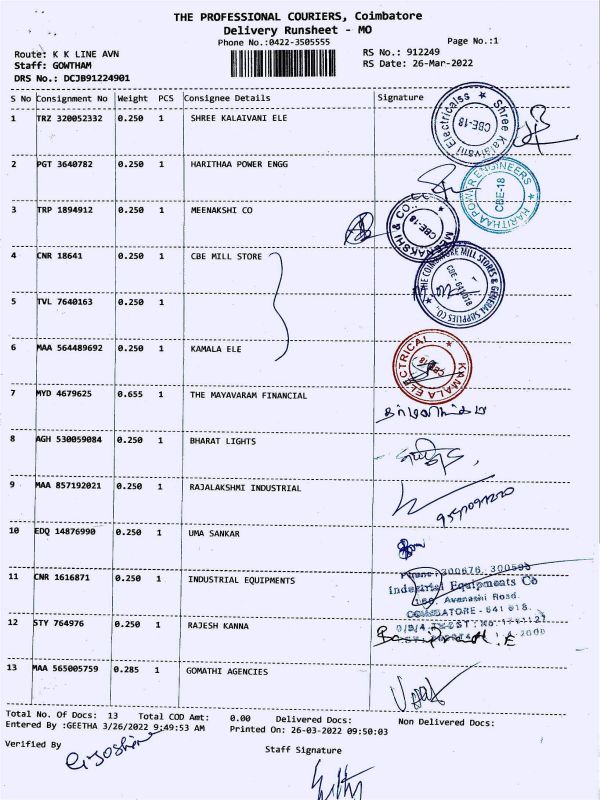 THE PROFESSIONAL COURIERS, Coimbatore
Delivery Runsheet - MO
Phone No.:0422-3505555
Page No.:1
Route: K K LINE AVN
RS No.: 912249
Staff: GOWTHAM
RS Date: 26-Mar-2022
DRS No.: DCJB91224901
S No Consignment No Weight PCS Consignee Details Signature
1 TRZ 320052332 0.250 1 SHREE KALAIVANI ELE
Shree Kalaivani Electricalss CBE-18
2 PGT 3640782 0.250 1 HARITHAA POWER ENGG
HARITHAA POWER ENGINEERS CBE-18
3 TRP 1894912 0.250 1 MEENAKSHI CO
MEENAKSHI & CO. CBE-18
4 CNR 18641 0.250 1 CBE MILL STORE
THE COIMBATORE MILL STORES & GENERAL SUPPLIES CO. CBE - 641018
5 TVL 7640163 0.250 1
6 MAA 564489692 0.250 1 KAMALA ELE
KAMALA ELECTRICAL
7 MYD 4679625 0.655 1 THE MAYAVARAM FINANCIAL
8 AGH 530059084 0.250 1 BHARAT LIGHTS
9 MAA 857192021 0.250 1 RAJALAKSHMI INDUSTRIAL
10 EDQ 14876990 0.250 1 UMA SANKAR
11 CNR 1616871 0.250 1 INDUSTRIAL EQUIPMENTS
Phone: 300676, 300598
Industrial Equipments Co
160, Avanashi Road.
COIMBATORE - 641 018.
12 STY 764976 0.250 1 RAJESH KANNA
13 MAA 565005759 0.285 1 GOMATHI AGENCIES
Total No. Of Docs: 13 Total COD Amt: 0.00 Delivered Docs: Non Delivered Docs:
Entered By :GEETHA 3/26/2022 9:49:53 AM Printed On: 26-03-2022 09:50:03
Verified By
Staff Signature